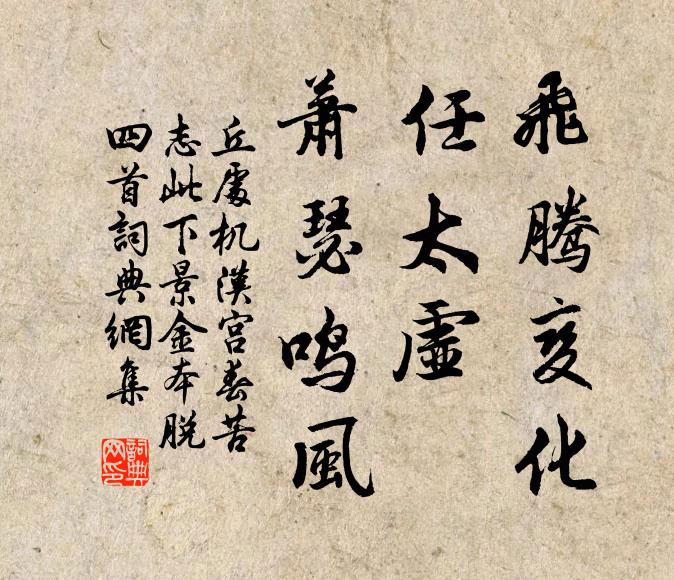 飛騰变化
任太虛
蕭瑟鳴風
丘處机漢宮春苦
志此下景金本脫
四首詞典網集
詞典網印